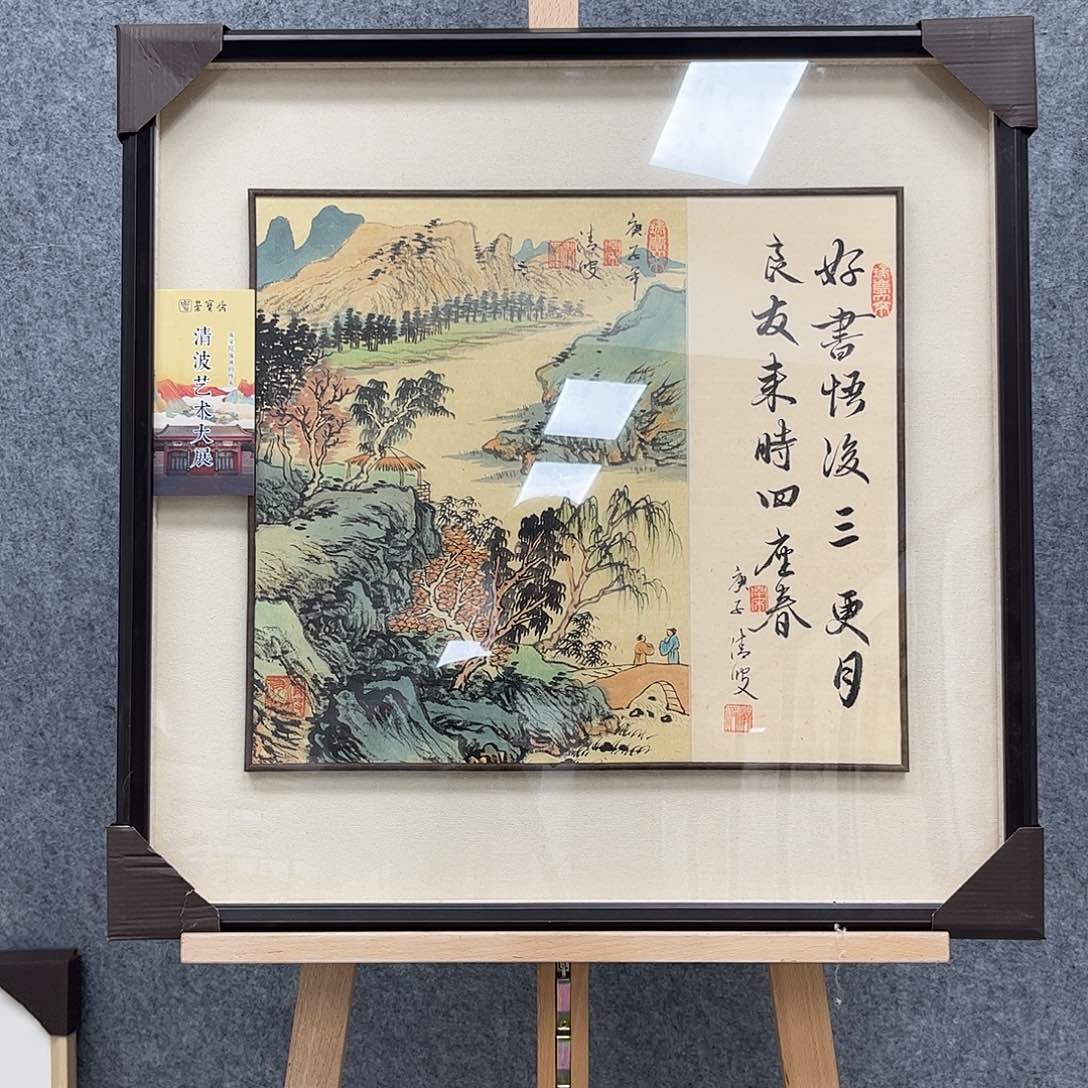 好書悟後三更月
良友来時四座春
庚子 清波
庚子年
清波
榮寶齋
清波艺术大展